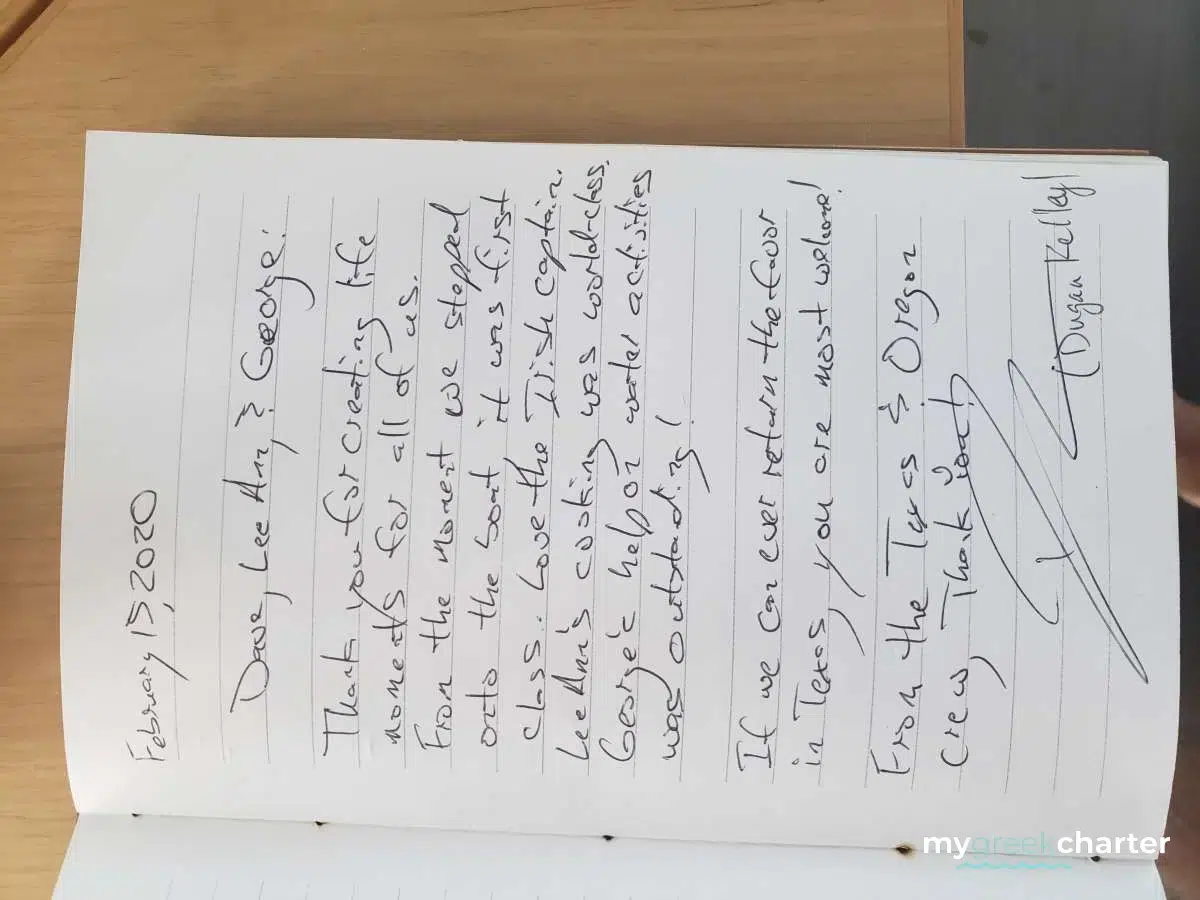 February 15, 2020
Dave, Lee Ann, & George:
Thank you for creating life
moments for all of us.
From the moment we stepped
onto the boat it was first
class. Love the Irish captain.
LeeAnn's cooking was world-class.
George's help on water activities
was outstanding!
If we can ever return the favor
in Texas, you are most welcome!
From the Texas & Oregon
crew, Thank you!
(Dugan Kelley)
mygreekcharter